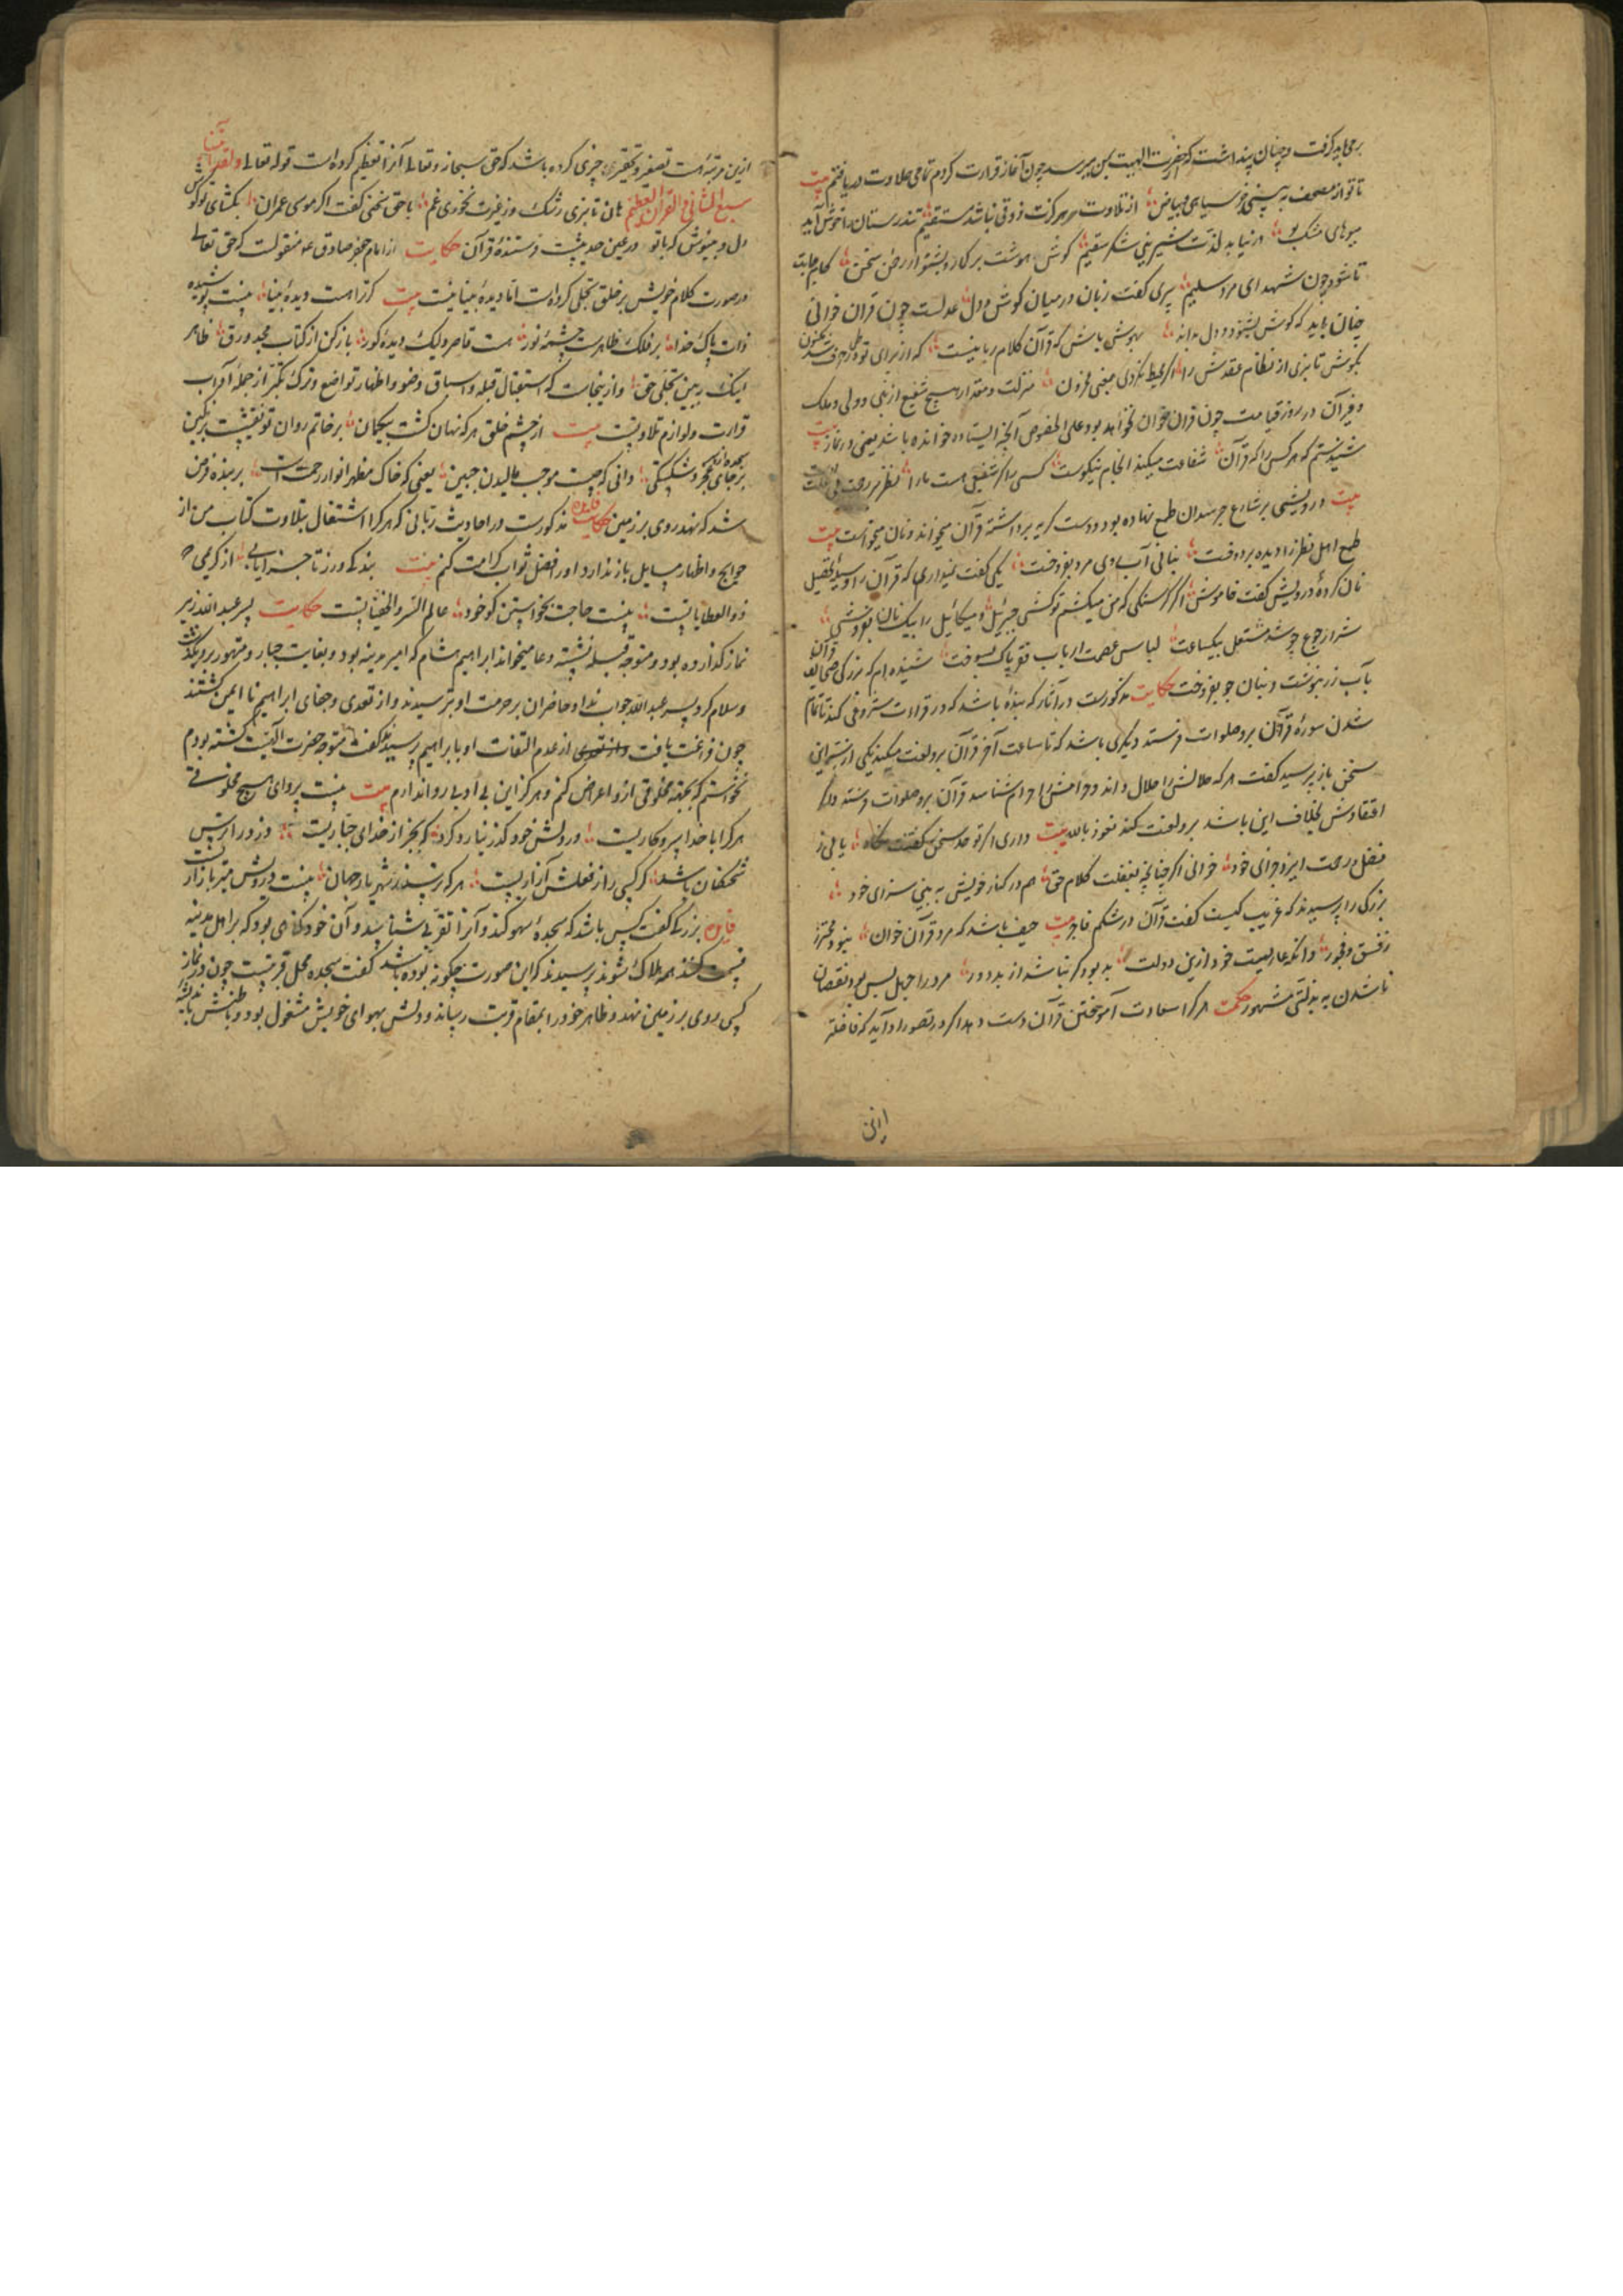 بر می باید گرفت و چنان پنداشت که از حضرت الهیت بمن میرسد چون آغاز قرارت کردم تمامی حلاوت دریافتم بیت
تا تو از مصحف به بینی جز سیاهی و بیاض از تلاوت هرگزت ذوقی نباشد مستقیم تندرستان را خوش آید
میوهای مشک بو در نیابد لذت شیرینی شکر سقیم گوش هوشت بر کار و بشنو از من سخن کام جانت
تا شود چون شهد ای مرد سلیم پیری گفت زبان در میان گوش و دل عدلست چون قران خوانی
چنان باید که گوش بشنود و دل داند بهوش باش که قرآن کلام ربانیست که از برای تو
بکوش تا بری از نظام عقدش را اگر محیط نگردی بمعنی مخزون منزلت و مقدار هیچ شفیع از نبی و ولی و ملک
و غیر آن در روز قیامت چون قران خوان نخواهد بود علی الخصوص آنچه ایستاده خوانده باشد یعنی در نماز بیت
شنیدستم که هر کس را که قرآن شفاعت میکند انجام نیکوست کسی را گر شفیعی هست ما را نظر بر رحمت
بیت درویشی بر شارع خرسندان طمع نهاده بود و دست گریه برداشته قرآن میخواند و نان میخواست بیت
طمع اهل نظر را دیده بردوخت بنانی آب روی مرد بفروخت یکی گفت نمیداری که قرآن را وسیله تحصیل
نان کرده درویش گفت خاموش اگر گرسنگی که من میکشم تو کشی جبرئیل و میکائیل را بیک نان بفروشی
شرار جوع چو شد مشتعل بیکساعت لباس عصمت ارباب فقر پاک بسوخت شنیده ام که بزرگی صحایف قرآن
بآب زر بنوشت و بنان جو بفروخت حکایت مذکورست در آثار که بنده باشد که در قراءت شروعی کند تا تمام
شدن سوره قرآن برو صلوات فرستد و دیگری باشد که تا ساعت آخر قرآن برو لعنت میکند یکی از سر این
سخن باز پرسید گفت هر که حلالش را حلال داند و حرامش را حرام شناسد قرآن برو صلوات فرستد و اگر
اعتقادش بخلاف این باشد برو لعنت کند نعوذ بالله بیت داری اگر تو صد سخن یابی ز
فضل رحمت ایزد جزای خود خوانی اگر چنانچه بغفلت کلام حق هم در کنار خویش به بینی سزای خود
بزرگی را پرسیدند که غریب کیست گفت قرآن در شکم فاجر بیت حیف باشد که مرد قرآن خوان نبود محترز
ز فسق و فجور وانکه عاریست خود ازین دولت به بود گر نباشد از بد دور مرد را جهل بس بود نقصان
ناشدن به بذلتی مشهور حکمت هر کرا سعادت آموختن قرآن دست دهد اگر در تصور او آید که فاضلتر
ازین مرتبه هست تصغیر و تحقیر چیزی کرده باشد که حق سبحانه و تعالی آنرا تعظیم کرده است قوله تعالی ولقد آتیناک
سبع المثانی والقرآن العظیم هان تا نبری رشک و ز غیرت نخوری غم با حق سخنی گفت اگر موسی عمران بکشای تو گوش
دل و مینوش که با تو در عین حدیثست فرستنده قرآن حکایت از امام جعفر صادق منقولست که حق تعالی
در صورت کلام خویش بر خلق تجلی کرده است اما دیده بینا نیست بیت گر ترا هست دیده بینا نیست پوشیده
ذات پاک خدا بر فلک ظاهرست چشمه نور هست قاصر ولیک دیده کور باز کن از کتاب مجد ورق ظاهر
اینک ببین تجلی حق و از ینجاست که استقبال قبله و اسباق وضو و اظهار تواضع و ترک تکبر از جمله آداب
قرارت و لوازم تلاوتست بیت از چشم خلق هر که نهان گشت بیگمان بر خاتم روان تو نقشیست بر نگین
بر جای عجز و شکستگی دانی که چیست موجب مالیدن جبین یعنی که خاک مظهر انوار رحمت است بر بنده فرض
شد که نهد روی بر زمین حکایت مذکورست در احادیث ربانی که هر کرا اشتغال بتلاوت کتاب من از
حوایج و اظهار مسایل باز ندارد او را فضل ثواب کرامت کنم بیت بندگی ورز تا جزا یابی از کریمی که
ذو العطایاست نیست حاجت بخواستن کو خود عالم السر و الخفیاتست حکایت پسر عبد الله زبیر
نماز گذارده بود و متوجه قبله نشسته و دعا میخواند ابراهیم هشام که امیر مدینه بود و بغایت جبار و متهور برو بگذشت
و سلام کرد پسر عبد الله جواب نداد حاضران بر حرمت او بترسیدند و از تعدی و جفای ابراهیم نا ایمن گشتند
چون فراغت یافت از عدم التفات او بابراهیم پرسیدند گفت متوجه حضرت الهیت گشته بودم
نخواستم که بجهت مخلوقی ازو اعراض کنم و هرگز این بی ادبی روا ندارم بیت نیست پروای هیچ مخلوقی
هر کرا با خدا سر و کاریست در دلش خود گذر نیارد کرد که بجز از خدای جباریست وز دو ارپس
شحنگان باشد گر کسی را ز فعلش آزاریست هر که ترسد ز شهریار جهان نیست در دلش میر بازار
فایده بزرگی گفت کس باشد که سجده سهو کند و آنرا تقرب شناسد و آن خود گناهی بود که بر اهل مدینه
قسمت کنند همه هلاک شوند پرسیدند که این صورت چگونه بوده باشد گفت سجده محل قربتست چون در نماز
کسی روی بر زمین نهد و ظاهر خود را بمقام قربت رساند و دلش بهوای خویش مشغول بود و باطنش
انی